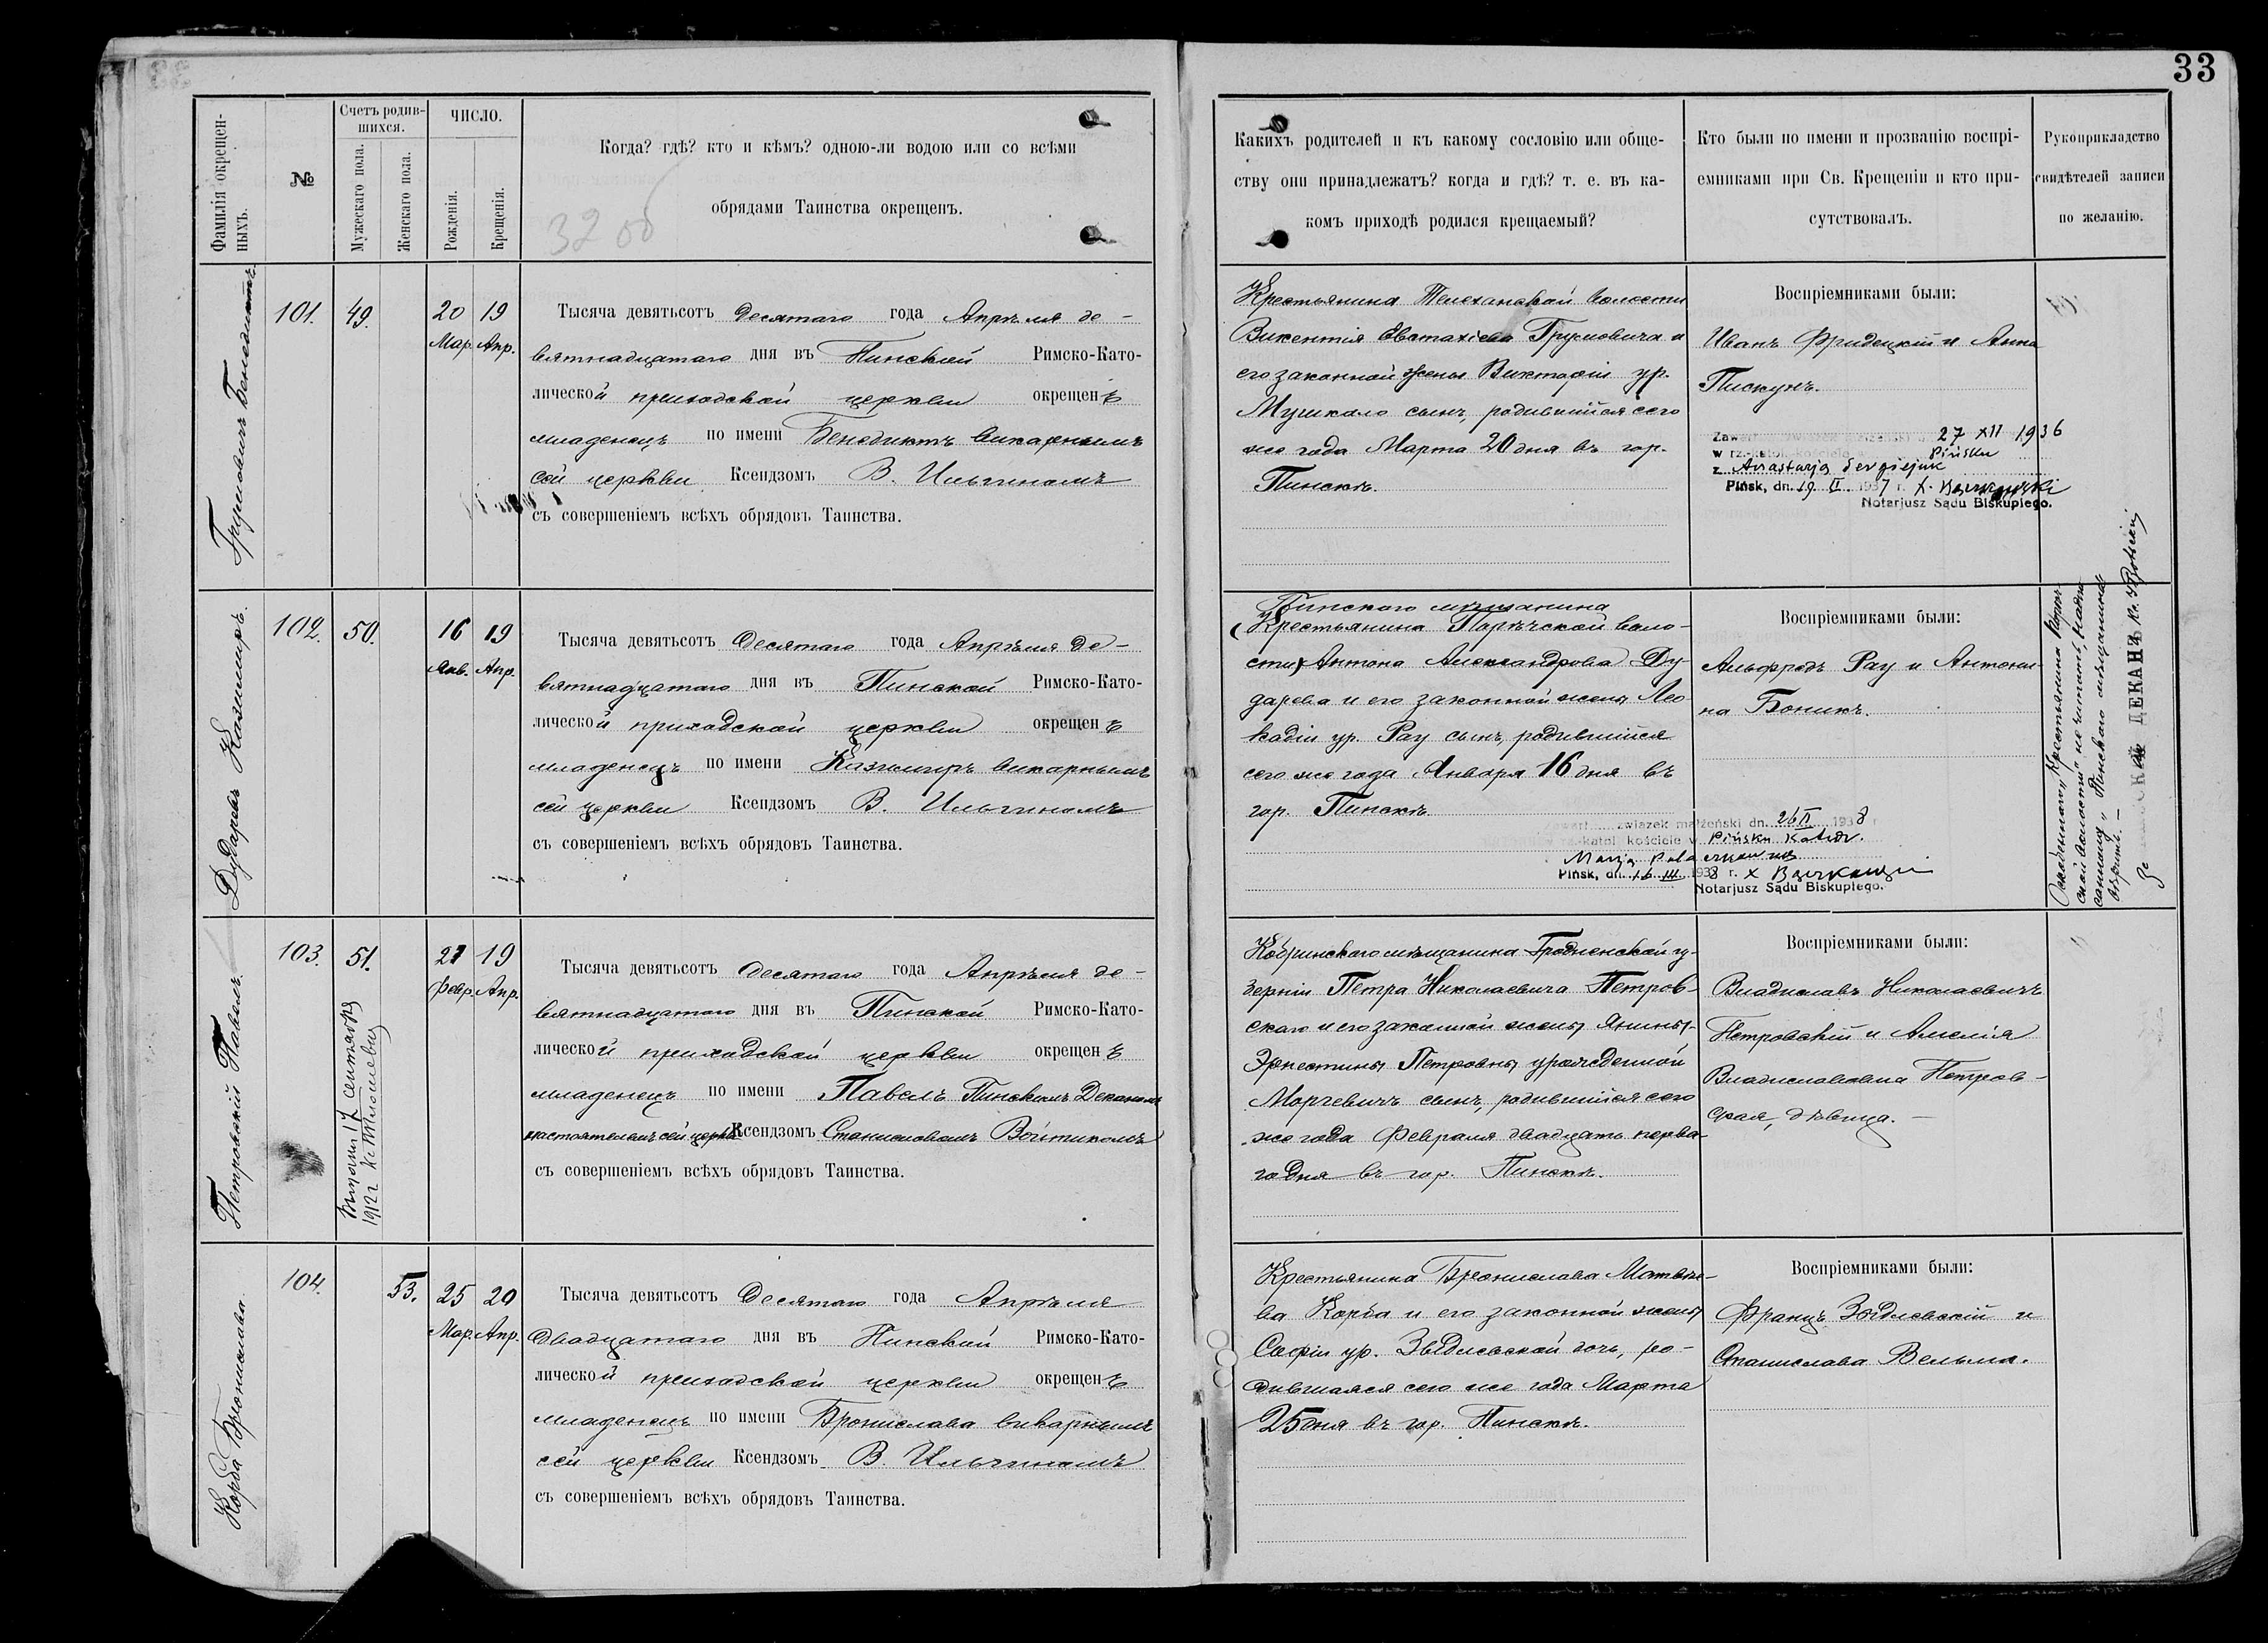 33
Фамилія окрещен-
ныхъ.
№
Счетъ родив-
шихся.
Мужескаго пола.
Женскаго пола.
ЧИСЛО.
Рожденія.
Крещенія.
Когда? гдѣ? кто и кѣмъ? одною-ли водою или со всѣми
обрядами Таинства окрещенъ.
3200
Какихъ родителей и къ какому сословію или обще-
ству они принадлежатъ? когда и гдѣ? т. е. въ ка-
комъ приходѣ родился крещаемый?
Кто были по имени и прозванію воспрі-
емниками при Св. Крещеніи и кто при-
сутствовалъ.
Рукоприкладство
свидѣтелей записи
по желанію.
Бенедиктъ.
101.
49.
20 Мар.
19 Апр.
Тысяча девятьсотъ десятаго года Апрѣля де-
вятнадцатаго дня въ Пинской Римско-Като-
лической приходской церкви окрещенъ
младенецъ по имени Бенедиктъ викарнымъ
сей церкви Ксендзомъ В. Ильгиномъ
съ совершеніемъ всѣхъ обрядовъ Таинства.
Крестьянина Телеханской волости
Викентія Евстахіева Грушовича и
его законной жены Викторіи ур.
Мушкало сынъ, родившійся сего
же года Марта 20 дня въ гор.
Пинскѣ.
Воспріемниками были:
Иванъ Фридецкій и Анна
Пискунъ.
27 XII 1936
w rz.-katol. kościele w Pińsku
z Anastazją Sergiejuk
Pińsk, dn. 19 II 1937 r. X.
Notarjusz Sądu Biskupiego.
Дударевъ Казимиръ.
102.
50.
16 Янв.
19 Апр.
Тысяча девятьсотъ десятаго года Апрѣля де-
вятнадцатаго дня въ Пинской Римско-Като-
лической приходской церкви окрещенъ
младенецъ по имени Казимиръ викарнымъ
сей церкви Ксендзомъ В. Ильгиномъ
съ совершеніемъ всѣхъ обрядовъ Таинства.
Пинского мѣщанина
(Крестьянина Парѣчской воло-
сти) Антона Александрова Ду-
дарева и его законной жены Лео-
кадіи ур. Рау сынъ, родившійся
сего же года Января 16 дня въ
гор. Пинскѣ.
Воспріемниками были:
Альфредъ Рау и Антони-
на Боникъ.
związek małżeński dn. 26 II 1938
katol. kościele w Pińsku Katedr.
Marją
Pińsk, dn. 16 III 1938 r. X
Notarjusz Sądu Biskupiego.
„Крестьянина
ской волости" не читать,
„Пинского мѣщанина"
вѣрить. —
ДЕКАНЪ Кс.
Петровскій Павелъ.
103.
51.
21 Февр.
19 Апр.
17 сентября
1912 г.
Тысяча девятьсотъ десятаго года Апрѣля де-
вятнадцатаго дня въ Пинской Римско-Като-
лической приходской церкви окрещенъ
младенецъ по имени Павелъ Пинскимъ Деканомъ
настоятелемъ сей церкви Ксендзомъ Станиславомъ Войтикомъ
съ совершеніемъ всѣхъ обрядовъ Таинства.
Кобринскаго мѣщанина Гродненской гу-
берніи Петра Николаевича Петров-
скаго и его законной жены Янины-
Эрнестины Петровны урожденной
Моргевичъ сынъ, родившійся сего
же года Февраля двадцать перва-
го дня въ гор. Пинскѣ.
Воспріемниками были:
Владиславъ Николаевичъ
Петровскій и Амелія
Владиславовна Петров-
ская, дѣвица. —
Корба Бронислава.
104.
53.
25 Мар.
20 Апр.
Тысяча девятьсотъ десятаго года Апрѣля
двадцатаго дня въ Пинской Римско-Като-
лической приходской церкви окрещенъ
младенецъ по имени Бронислава викарнымъ
сей церкви Ксендзомъ В. Ильгиномъ
съ совершеніемъ всѣхъ обрядовъ Таинства.
Крестьянина Бронислава Матвѣе-
ва Корба и его законной жены
Софіи ур. Звѣдлевской дочь, ро-
дившаяся сего же года Марта
25 дня въ гор. Пинскѣ.
Воспріемниками были:
Францъ Звѣдлевскій и
Станислава Вельма.